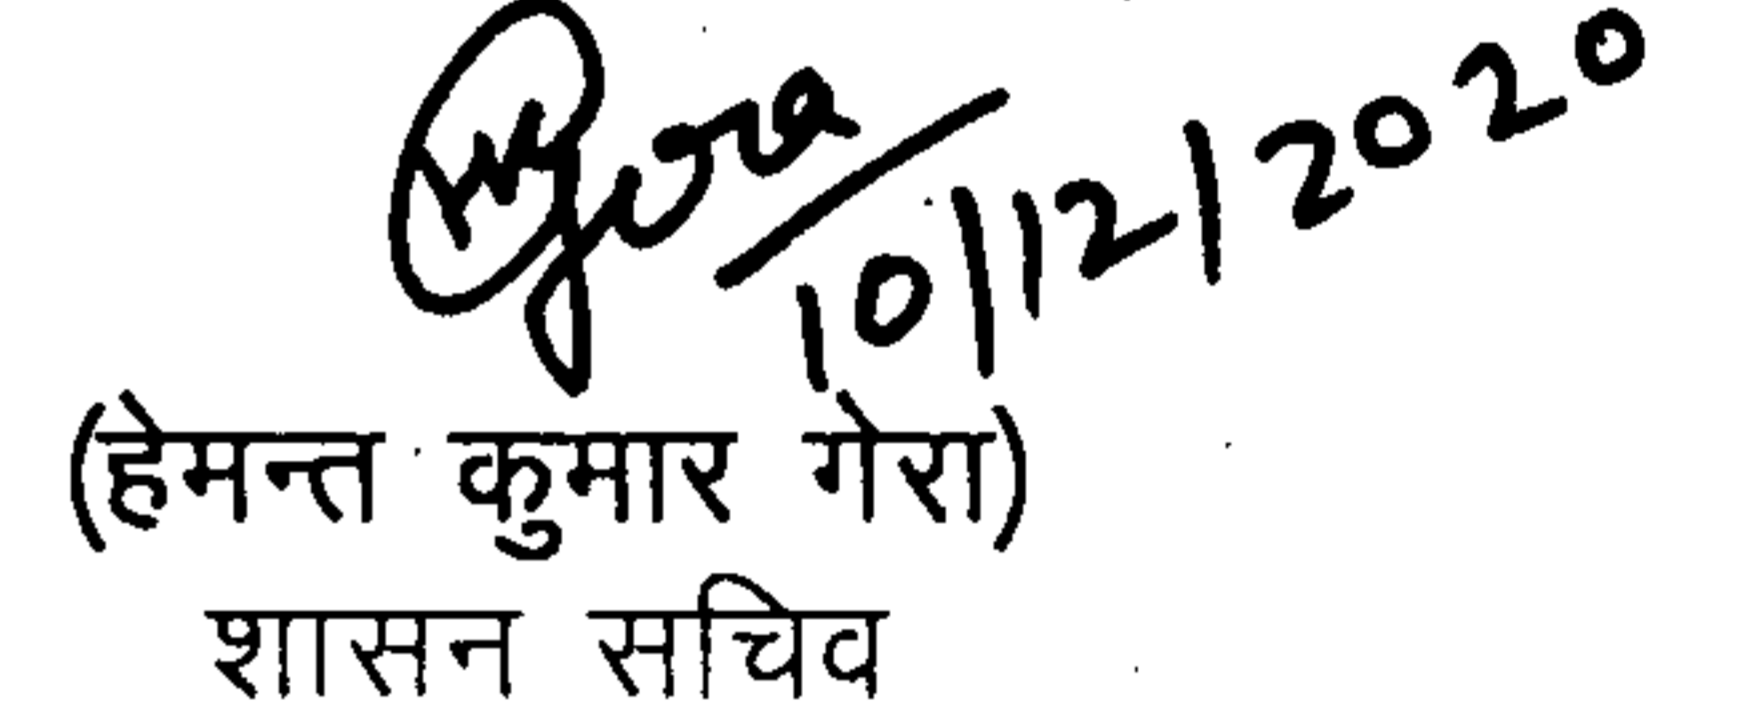 10/12/2020
(हेमन्त कुमार गेरा)
शासन सचिव